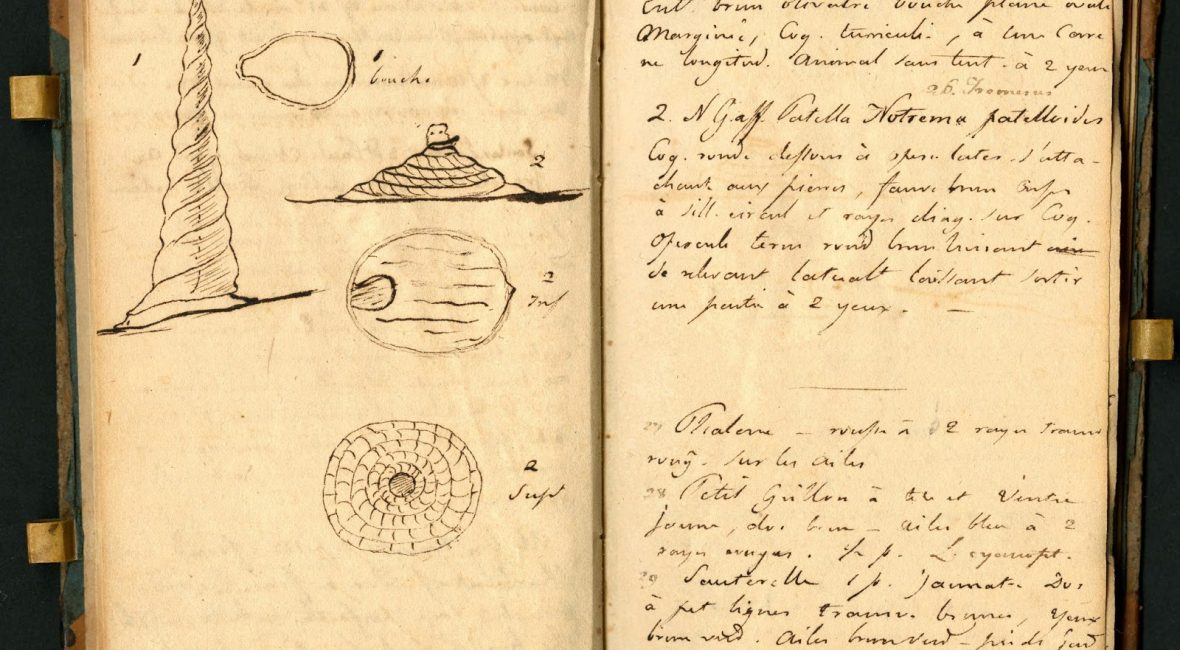 1
1
bouche
2
2
Inf
2
Sup
Ent. brun olivatre bouche pleine ovale
Marginée, Coq. turriculée, à une Care
ne longitud. Animal sans tent. à 2 yeux
2. N G. aff. Patella Notrema patelloides
Coq. ronde dessous à spire later. s'atta-
chant aux pierres, fauve brun
à sill. circul et rayes diag. sur Coq.
Opercule term rond brun luisant
se relevant lateralt laissant sortir
une partie à 2 yeux. —
27 Phalene — rousse à 2 rayes transv
roug. sur les ailes
28 Petit Grillon à tete et Ventre
jaune, dos brun — ailes bleu à 2
rayes rouges. p. L. cyanopt.
29 Sauterelle 1 p. jaunatre Dos
à pet lignes transv. brunes, yeux
brun verd. Ailes brun verd — pieds